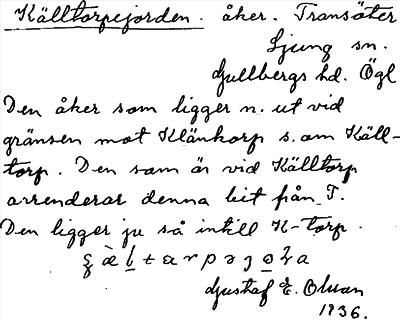 Källtorpejorden. åker. Transäter
Ljung sn.
Gullbergs hd. Ögl
Den åker som ligger n. ut vid
gränsen mot Klänkorp s. om Käll-
torp. Den som är vid Källtorp
arrenderar denna bit från T.
Den ligger ju så intill K-torp.
Gustaf E. Olsson
1936.